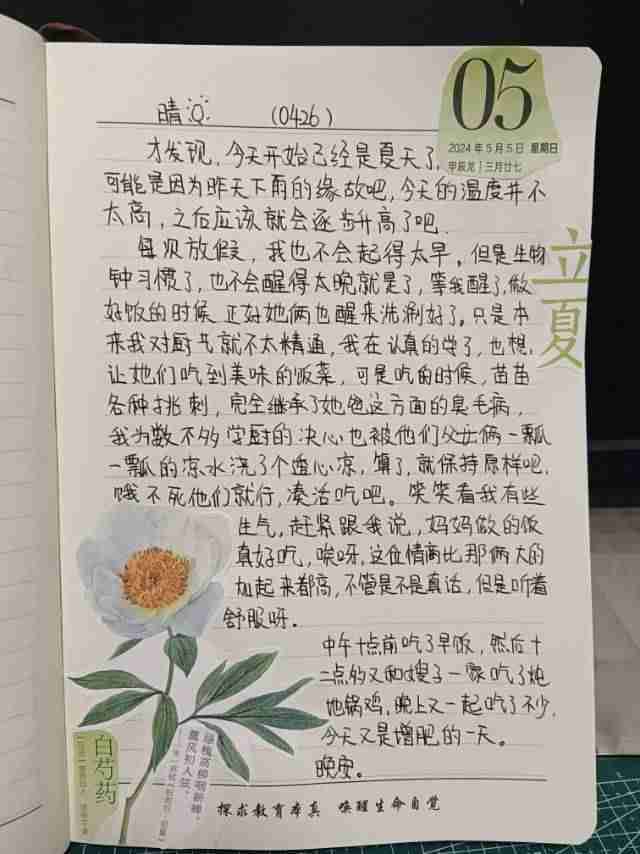 晴 (0426)
05
2024年5月5日 星期日
甲辰龙 三月廿七
立夏
才发现,今天开始已经是夏天了,
可能是因为昨天下雨的缘故吧,今天的温度并不
太高,之后应该就会逐步升高了吧.
每次放假,我也不会起得太早。但是生物
钟习惯了,也不会醒得太晚就是了,等我醒了,做
好饭的时候 正好她俩也醒来洗涮好了。只是本
来我对厨艺就不太精通,我在认真的学了,也想,
让她们吃到美味的饭菜,可是吃的时候,苗苗
各种挑刺,完全继承了她爸这方面的臭毛病,
我为数不多学厨的决心也被他们父女俩一瓢
一瓢的凉水浇了个透心凉,算了,就保持原样吧,
饿不死他们就行,凑活吃吧。笑笑看我有些
生气,赶紧跟我说,妈妈做的饭
真好吃,唉呀,这位情商比那俩大的
加起来都高,不管是不是真话,但是听着
舒服呀。
中午十点前吃了早饭,然后十
二点约又和嫂子一家吃了炖
地锅鸡,晚上又一起吃了不少,
今天又是增肥的一天。
晚安。
白芍药
绿槐高柳咽新蝉,
薰风初入弦。
探求教育本真 唤醒生命自觉